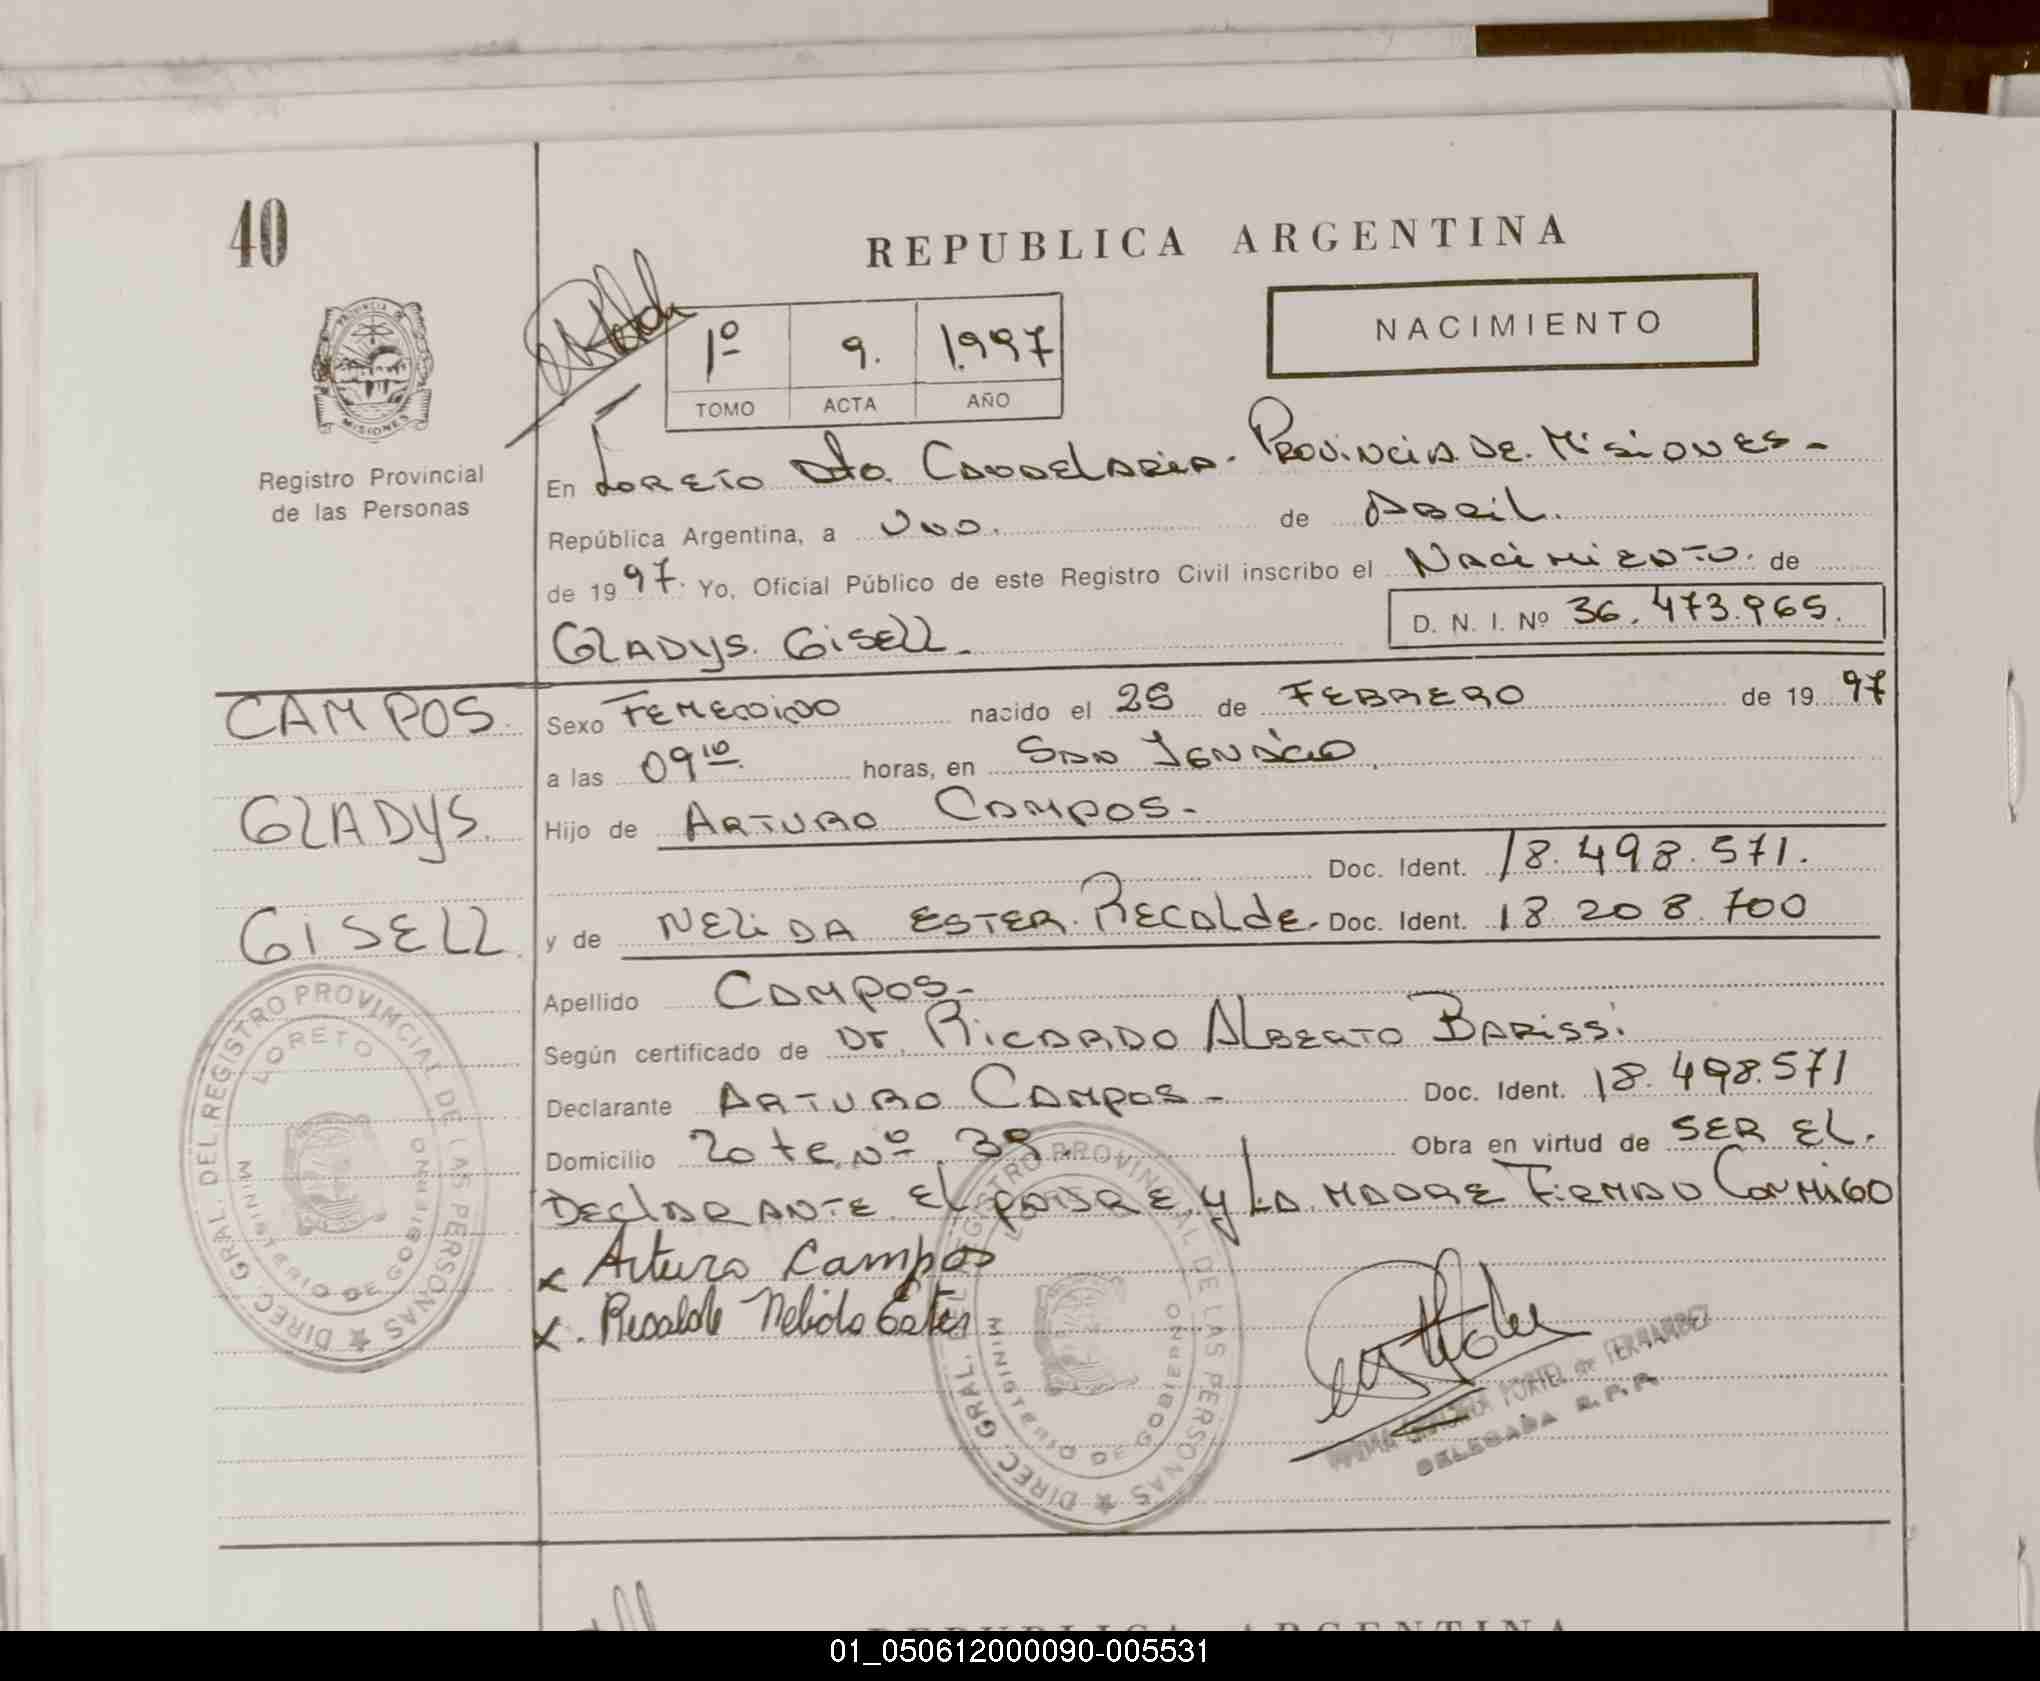 40
REPUBLICA ARGENTINA
NACIMIENTO
1º 9. 1.997
TOMO ACTA AÑO
PROVINCIA DE MISIONES
Registro Provincial
de las Personas
En LORETO Dto. CANDELARIA. PROVINCIA DE. MISIONES-
República Argentina, a UNO. de ABRIL.
de 1997. Yo, Oficial Público de este Registro Civil inscribo el NACIMIENTO. de
GLADYS. GISELL.
D. N. I. Nº 36.473.965.
CAMPOS.
GLADYS.
GISELL.
Sexo FEMENINO nacido el 25 de FEBRERO de 1997
a las 09 10 horas, en SAN IGNACIO.
Hijo de ARTURO CAMPOS-
Doc. Ident. 18.498.571.
y de NELIDA ESTER. RECALDE. Doc. Ident. 18 208.700
Apellido CAMPOS-
Según certificado de Dr. RICARDO ALBERTO BARISSi
Declarante ARTURO CAMPOS- Doc. Ident. 18.498.571
Domicilio Lote Nº 39. Obra en virtud de SER EL.
DECLARANTE EL PADRE, y LA MADRE FIRMAN CONMIGO
x Arturo Campos
x. Recalde Nelida Ester
DIREC. GRAL. DEL REGISTRO PROVINCIAL DE LAS PERSONAS
LORETO
MINISTERIO DE GOBIERNO
DIREC. GRAL. DEL REGISTRO PROVINCIAL DE LAS PERSONAS
MINISTERIO DE GOBIERNO
PORTEL de FERNANDEZ
DELEGADA R.P.P.
REPUBLICA ARGENTINA
01_050612000090-005531